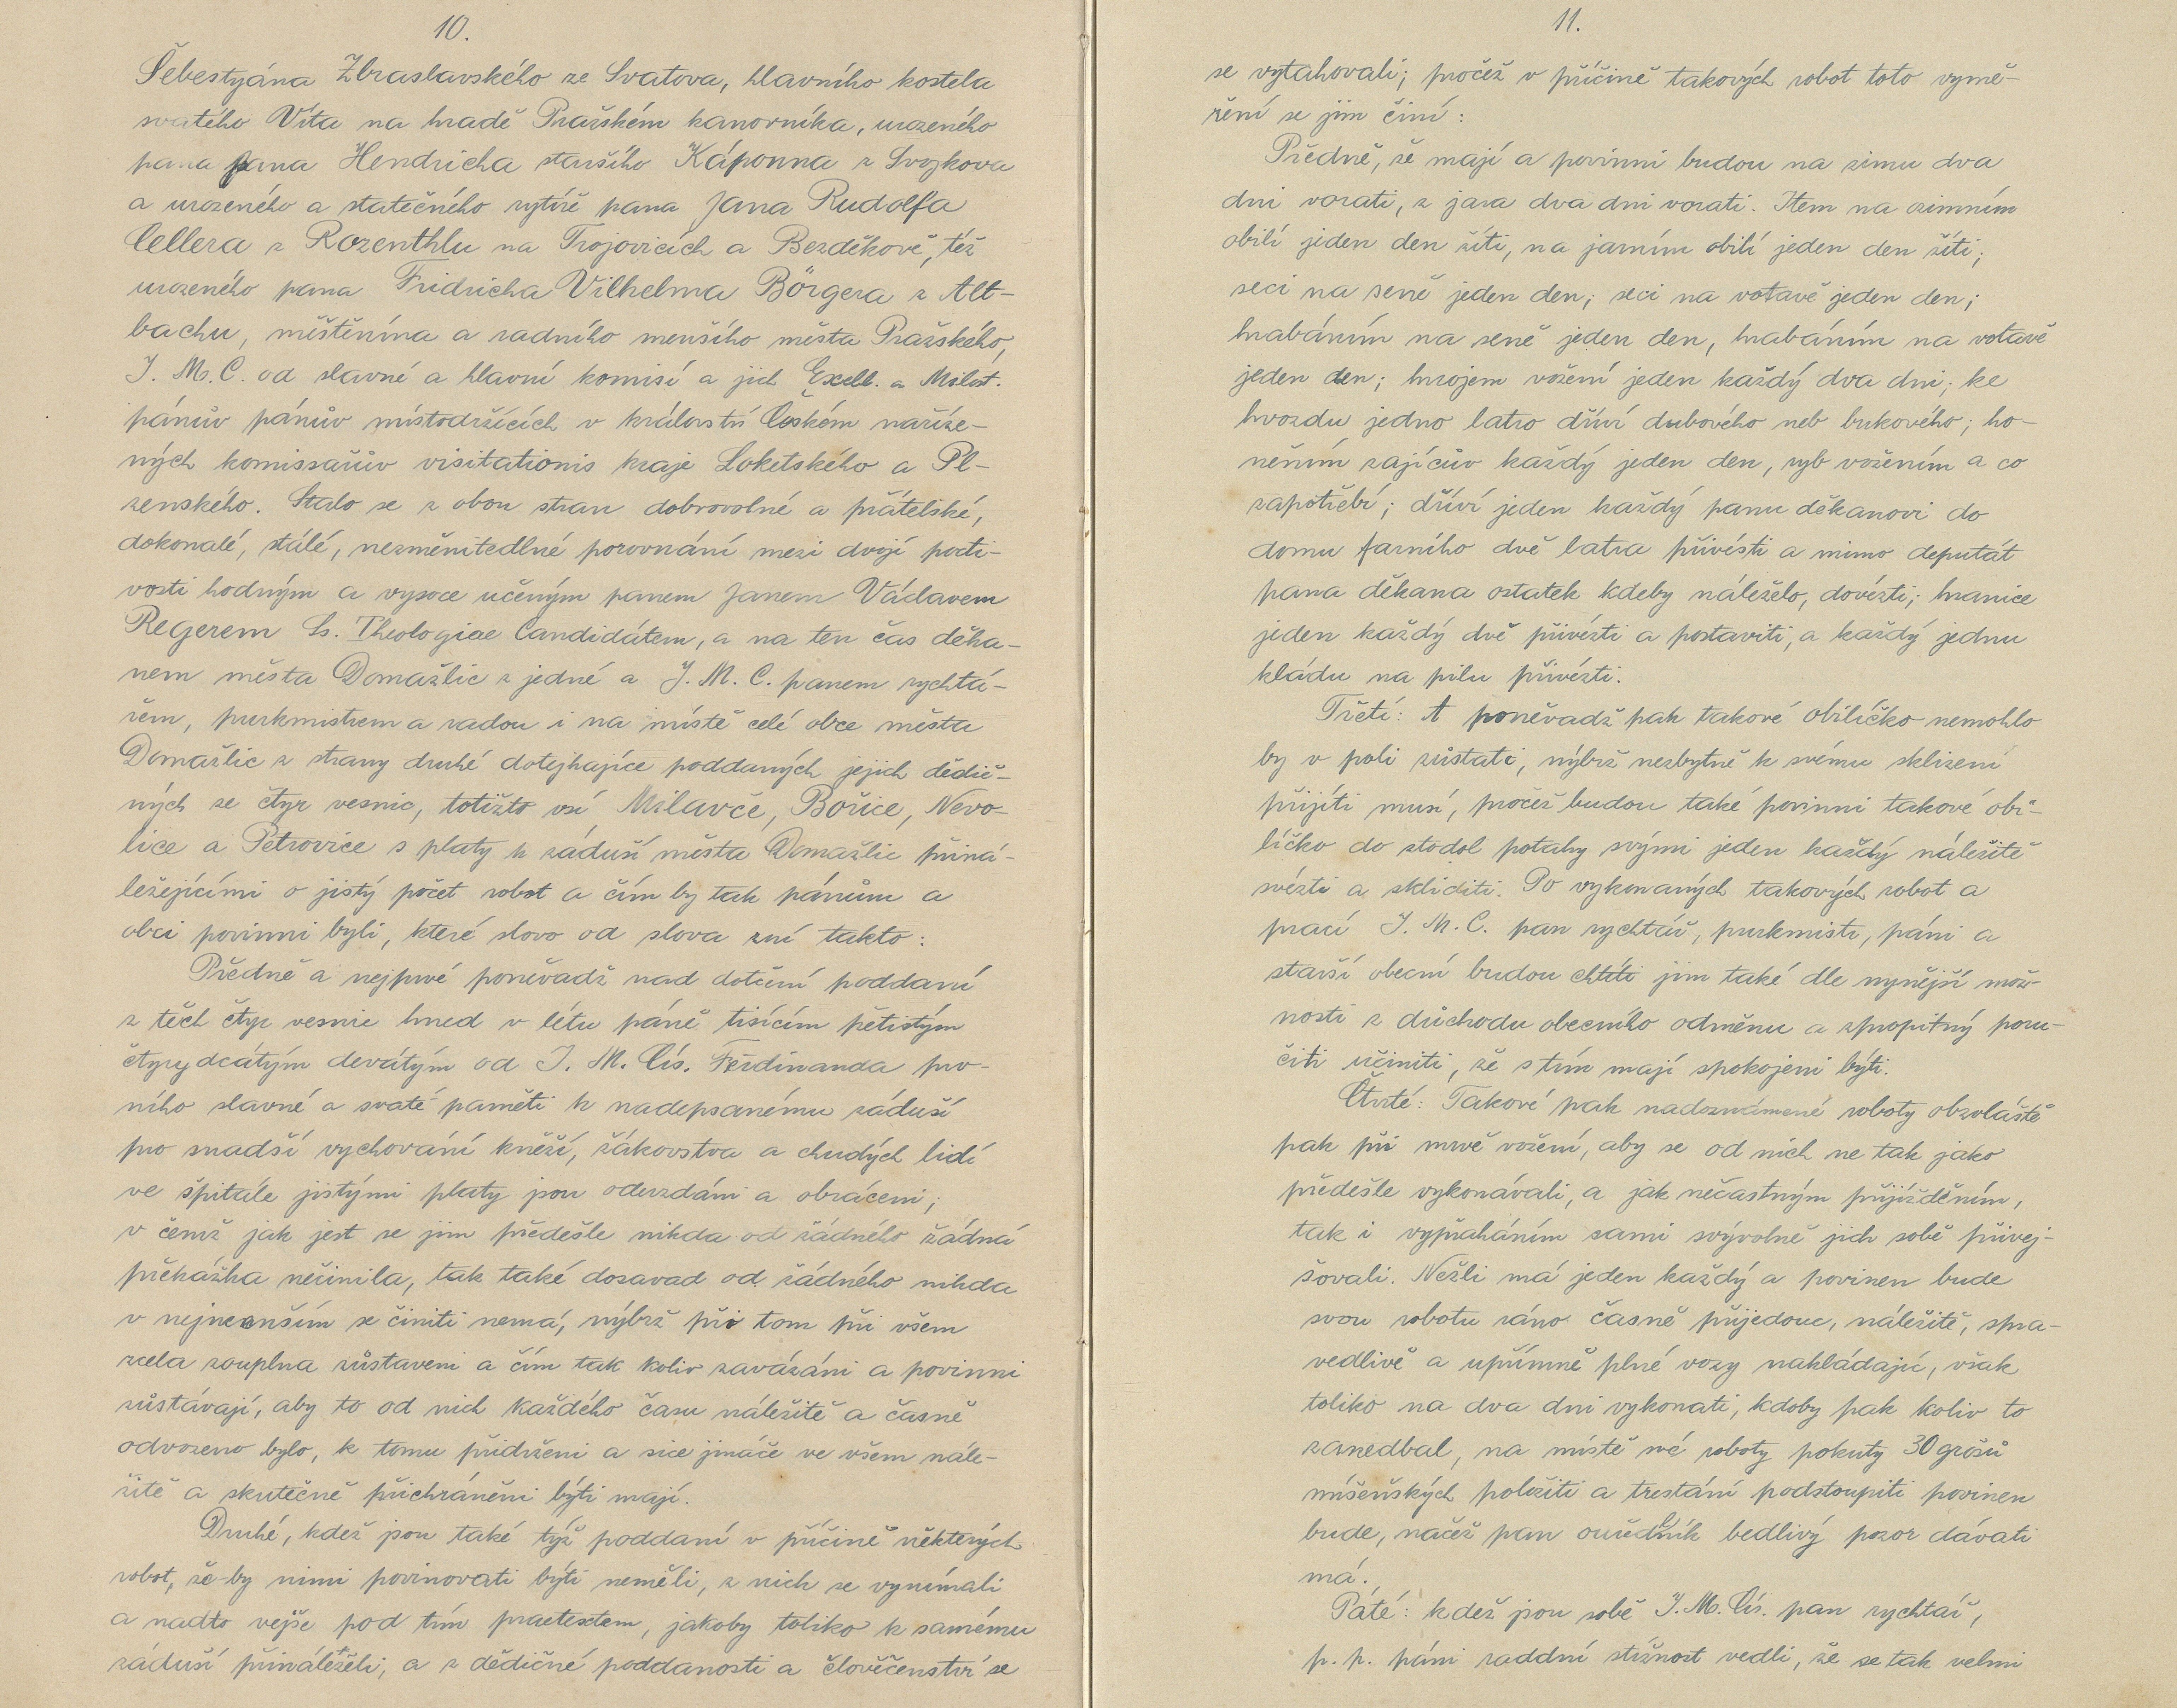 10.
Šebestyána Zbraslavského ze Svatova, hlavního kostela
svatého Víta na hradě Pražském kanovníka, urozeného
pana pana Hendricha staršího Káponna z Svojkova
a urozeného a statečného rytíře pana Jana Rudolfa
Cellera z Rozenthlu na Trojovicích a Bezděkově, též
urozeného pana Fridricha Vilhelma Börgera z Alt-
bachu, měštěnína a radního menšího města Pražského,
J. M. C. od slavné a hlavní komisí a jich Excell. a Milost.
pánův pánův místodržících v království Českém naříze-
ných komissařův visitationis kraje Loketského a Pl-
zenského. Stalo se z obou stran dobrovolné a přátelské,
dokonalé, stálé, nezměnitedlné porovnání mezi dvojí pocti-
vosti hodným a vysoce učeným panem Janem Václavem
Regerem Ss. Theologiae Candidátem, a na ten čas děka-
nem města Domažlic z jedné a J. M. C. panem rychtá-
řem, purkmistrem a radou i na místě celé obce města
Domažlic z strany druhé dotejkajíce poddaných jejich dědič-
ných ze čtyr vesnic, totižto vsí Milavče, Bořice, Nevo-
lice a Petrovice s platy k záduší města Domažlic přiná-
ležejícími o jistý počet robot a čím by tak pánům a
obci povinni byli, které slovo od slova zní takto:
Předně a nejprvé poněvadž nad dotčení poddaní
z těch čtyr vesnic hned v létu páně tisícím pětistým
čtyrydcátým devátým od J. M. Cís. Ferdinanda prv-
ního slavné a svaté paměti k nadepsanému záduší
pro snadší vychování kněží, žákovstva a chudých lidí
ve špitále jistými platy jsou odevzdáni a obráceni;
v čemž jak jest se jim předešle nikda od žádného žádná
překážka nečinila, tak také dosavad od žádného nikda
v nejmenším se činiti nemá, nýbrž při tom při všem
zcela zouplna zůstaveni a čím tak koliv zavázáni a povinni
zůstávají, aby to od nich každého času náležitě a časně
odvozeno bylo, k tomu přidrženi a sice jináče ve všem nále-
žitě a skutečně přichráněni býti mají.
Druhé, kdež jsou také týž poddaní v příčině některých
robot, že-by nimi povinovati býti neměli, z nich se vynímali
a nadto vejše pod tím praetextem, jakoby toliko k samému
záduší přináleželi, a z dědičné poddanosti a člověčenství se
11.
se vytahovali; pročež v příčině takových robot toto vymě-
ření se jim činí:
Předně, že mají a povinni budou na zimu dva
dni vorati, z jara dva dni vorati. Item na ozimním
obilí jeden den žíti, na jarním obilí jeden den žíti;
seci na seně jeden den; seci na votavě jeden den;
hrabáním na seně jeden den, hrabáním na votavě
jeden den; hnojem vožení jeden každý dva dni; ke
hvozdu jedno latro dříví dubového neb bukového; ho-
něním zajícův každý jeden den, ryb vožením a co
zapotřebí; dříví jeden každý panu děkanovi do
domu farního dvě latra přivésti a mimo deputát
pana děkana ostatek kdeby náleželo, dovézti; hranice
jeden každý dvě přivésti a postaviti, a každý jednu
kládu na pilu přivézti.
Třetí: A poněvadž pak takové obilíčko nemohlo
by v poli zůstati, nýbrž nezbytně k svému sklizení
přijíti musí, pročež budou také povinni takové obi-
líčko do stodol potahy svými jeden každý náležitě
svézti a skliditi. Po vykonaných takových robot a
prací J. M. C. pan rychtář, purkmistr, páni a
starší obecní budou chtíti jim také dle nynější mož-
nosti z důchodu obecního odměnu a zpropitný poru-
čiti učiniti, že s tím mají spokojeni býti.
Čtvrté: Takové pak nadoznámené roboty obzvláště
pak při mrvě vožení, aby se od nich ne tak jako
předešle vykonávali, a jak nečastným přijížděním,
tak i vypraháním sami svývolně jich sobě přivej-
šovali. Nežli má jeden každý a povinen bude
svou robotu ráno časně přijedouc, náležitě, spra-
vedlivě a upřímně plné vozy nakládajíc, však
toliko na dva dni vykonati, kdoby pak koliv to
zanedbal, na místě své roboty pokuty 30 grošů
míšeňských položiti a trestání podstoupiti povinen
bude, načež pan ouředlník bedlivý pozor dávati
má.
Páté: kdež jsou sobě J. M. Cís. pan rychtář,
p. p. páni raddní stížnost vedli, že se tak velmi